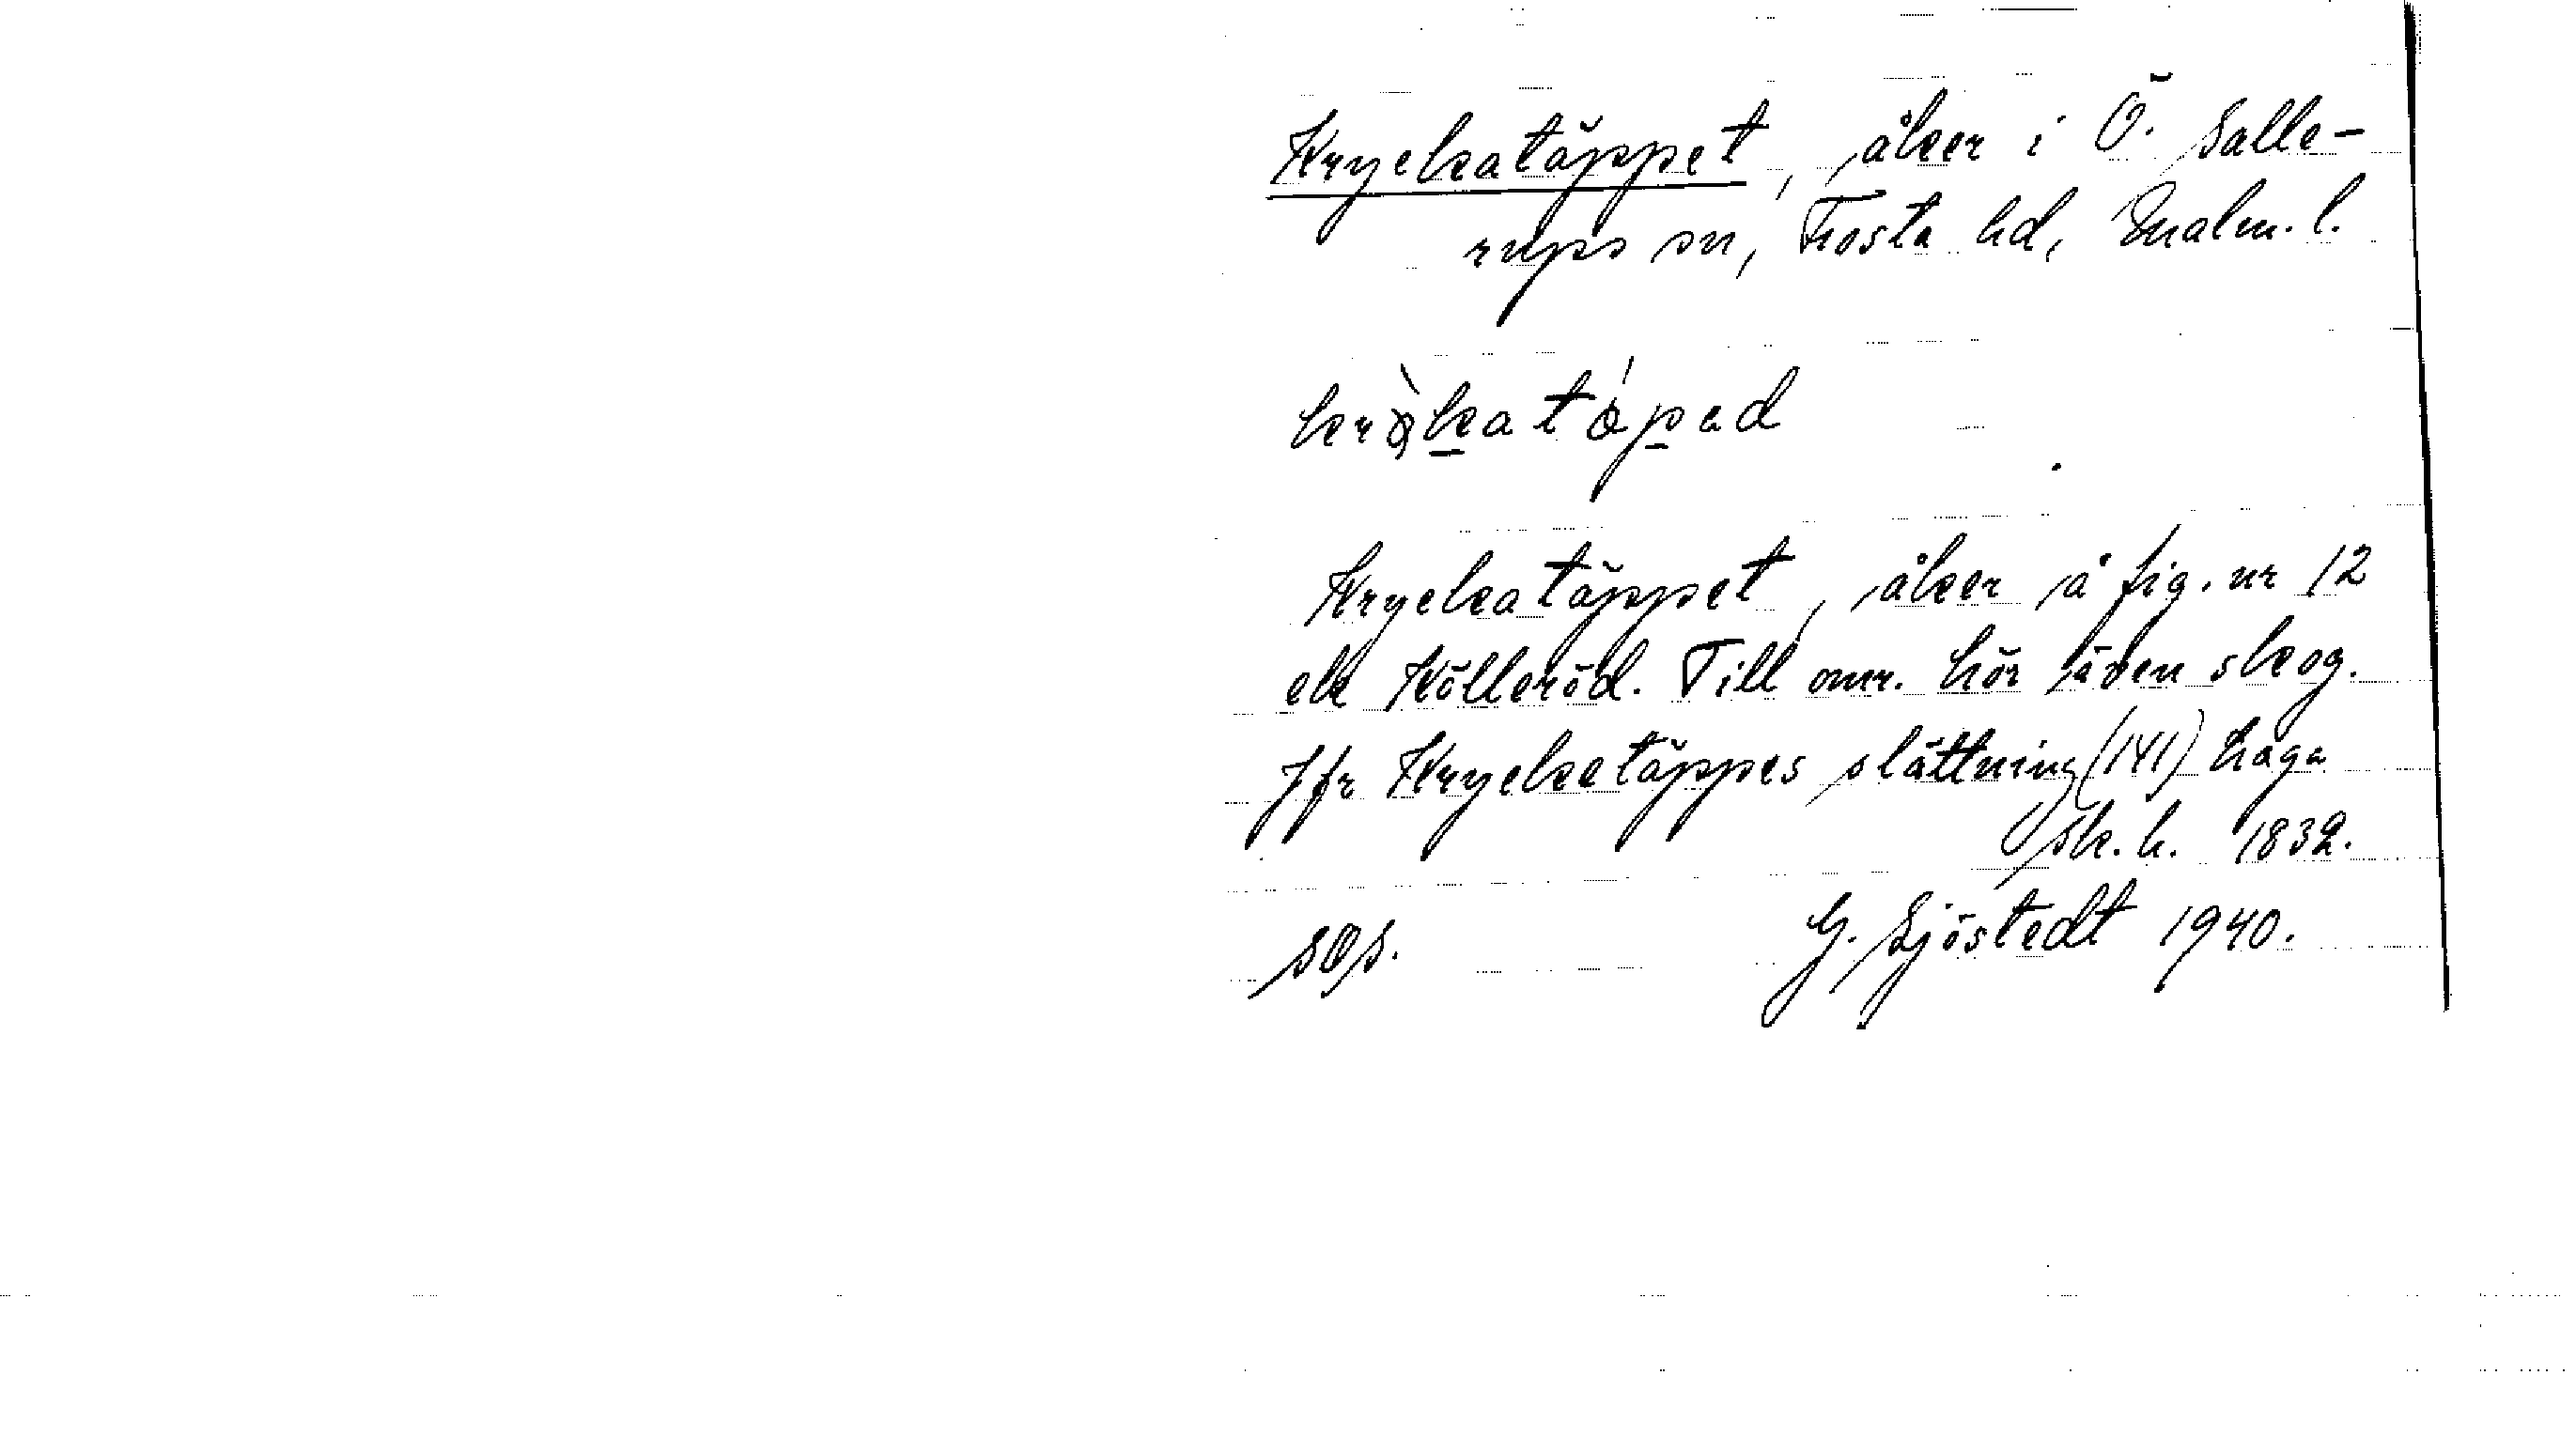 Kryckatäppet, åker i Ö. Salle-
rups sn, Frosta hd, Malm. l.
Kryckatäppet, åker å fig. nr 12
ek Kölleröd. Till omr. hör även skog.
Jfr Kryckatäppes slättning (141) haga
sk. h. 1832.
SOS. G. Sjöstedt 1940.